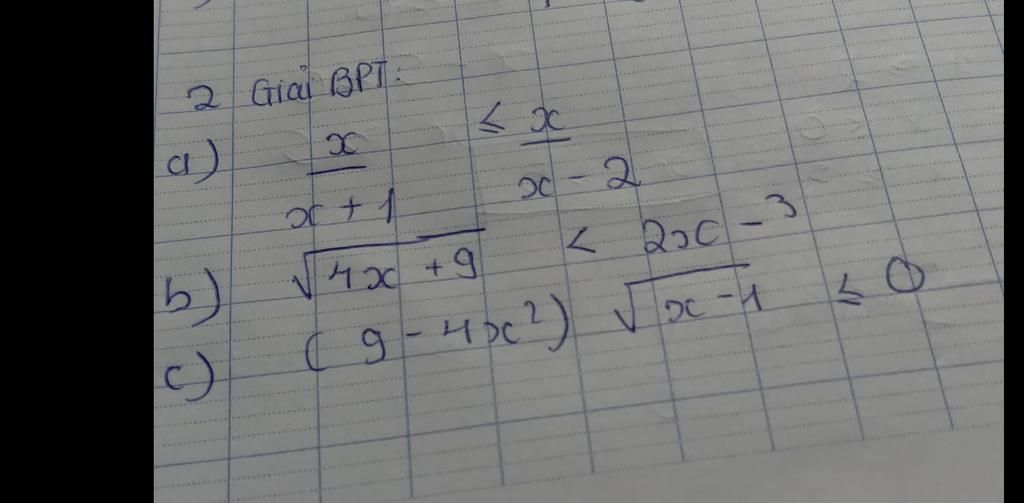 2 Giải BPT:
a) x/(x + 1) ≤ x/(x - 2)
b) √(4x + 9) < 2x - 3
c) (9 - 4x²) √(x - 1) ≤ 0